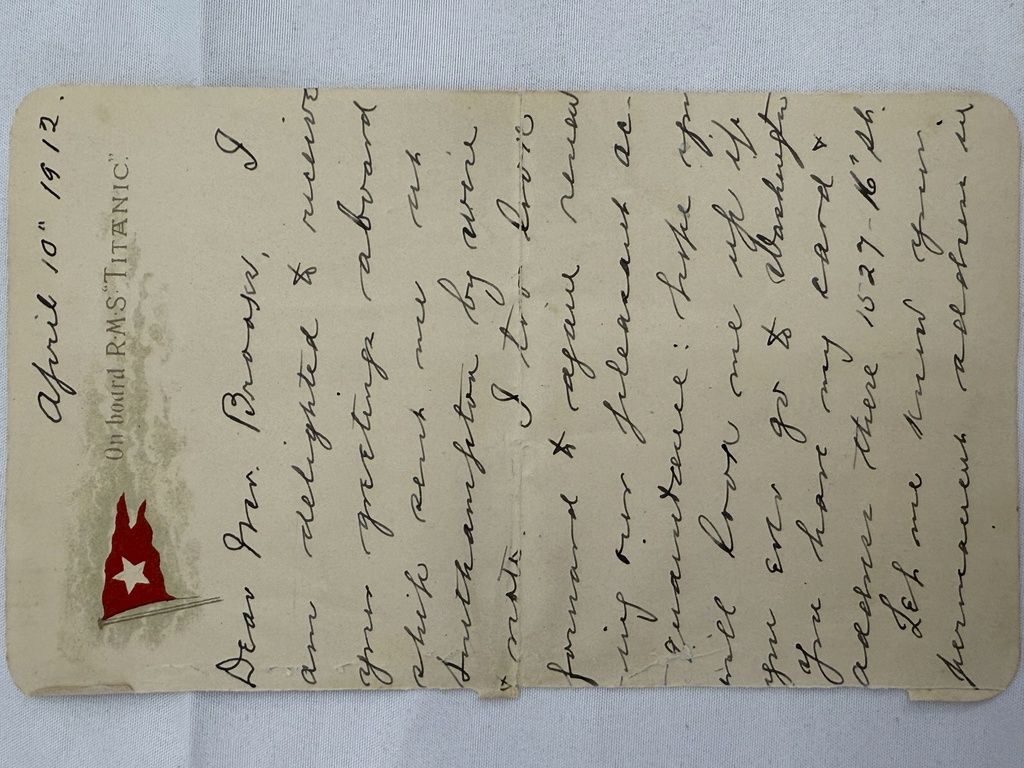 April 10" 1912.
On board R.M.S. "TITANIC".
Dear Mr. Bross, I
am delighted to receive
your greetings aboard
ship sent me at
Southampton by wire
& note. I to look
forward to again renew
ing our pleasant ac-
quaintance: hope you
will look me up if
you ever go to Washington
You have my card &
address there 1527-16" st.
Let me know your
permanent address in